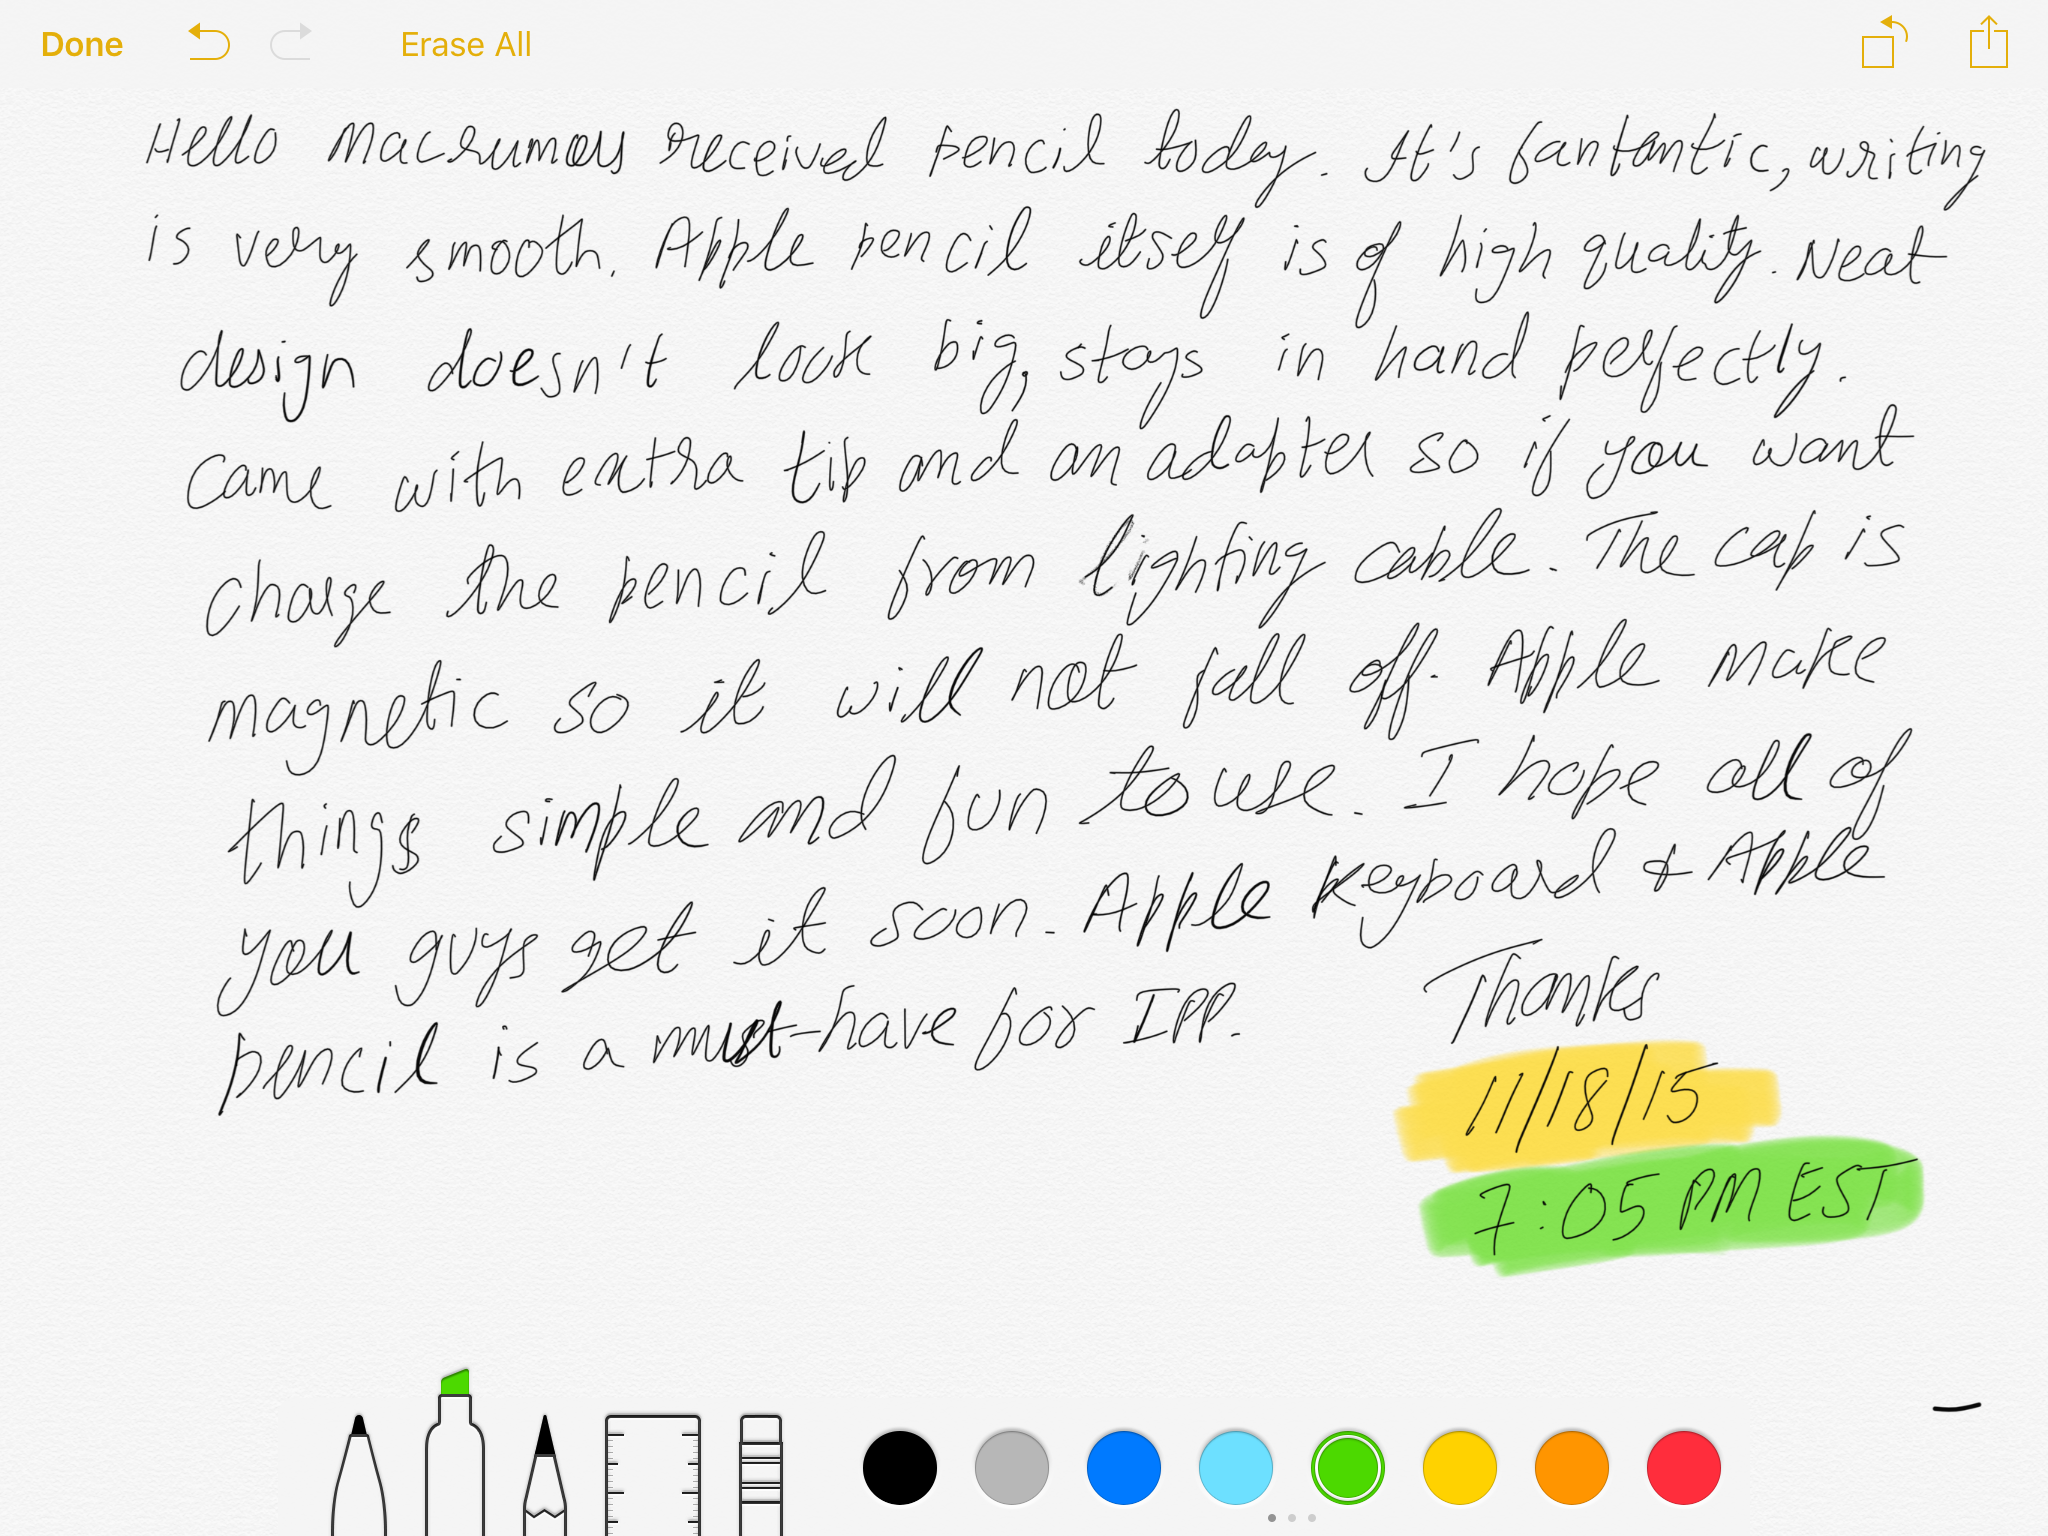 Done Erase All
Hello Macrumors received pencil today. It's fantantic, writing
is very smooth. Apple pencil itself is of high quality. Neat
design doesn't look big, stays in hand perfectly.
Came with extra tip and an adapter so if you want
charge the pencil from lighting cable. The cap is
magnetic so it will not fall off. Apple make
things simple and fun to use. I hope all of
you guys get it soon. Apple keyboard & Apple
pencil is a must-have for IPP.
Thanks
11/18/15
7:05 PM EST